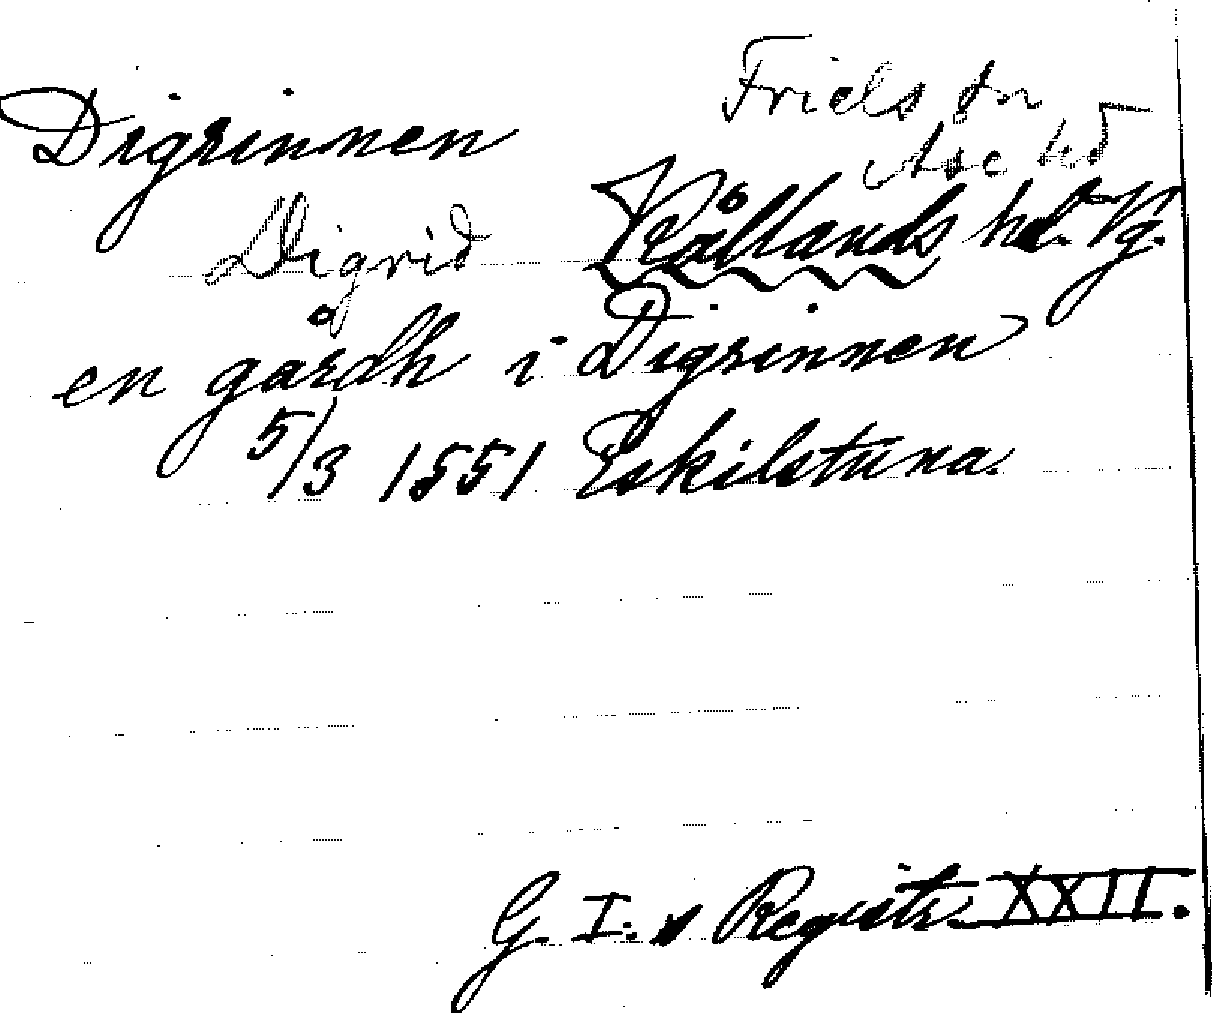 Friels sn
Digrinnen Åse hd
Digrid Kållands hd. Vg.
en gårdh i Digrinnen
5/3 1551 Eskilstuna.
G. I: s Registr. XXII.